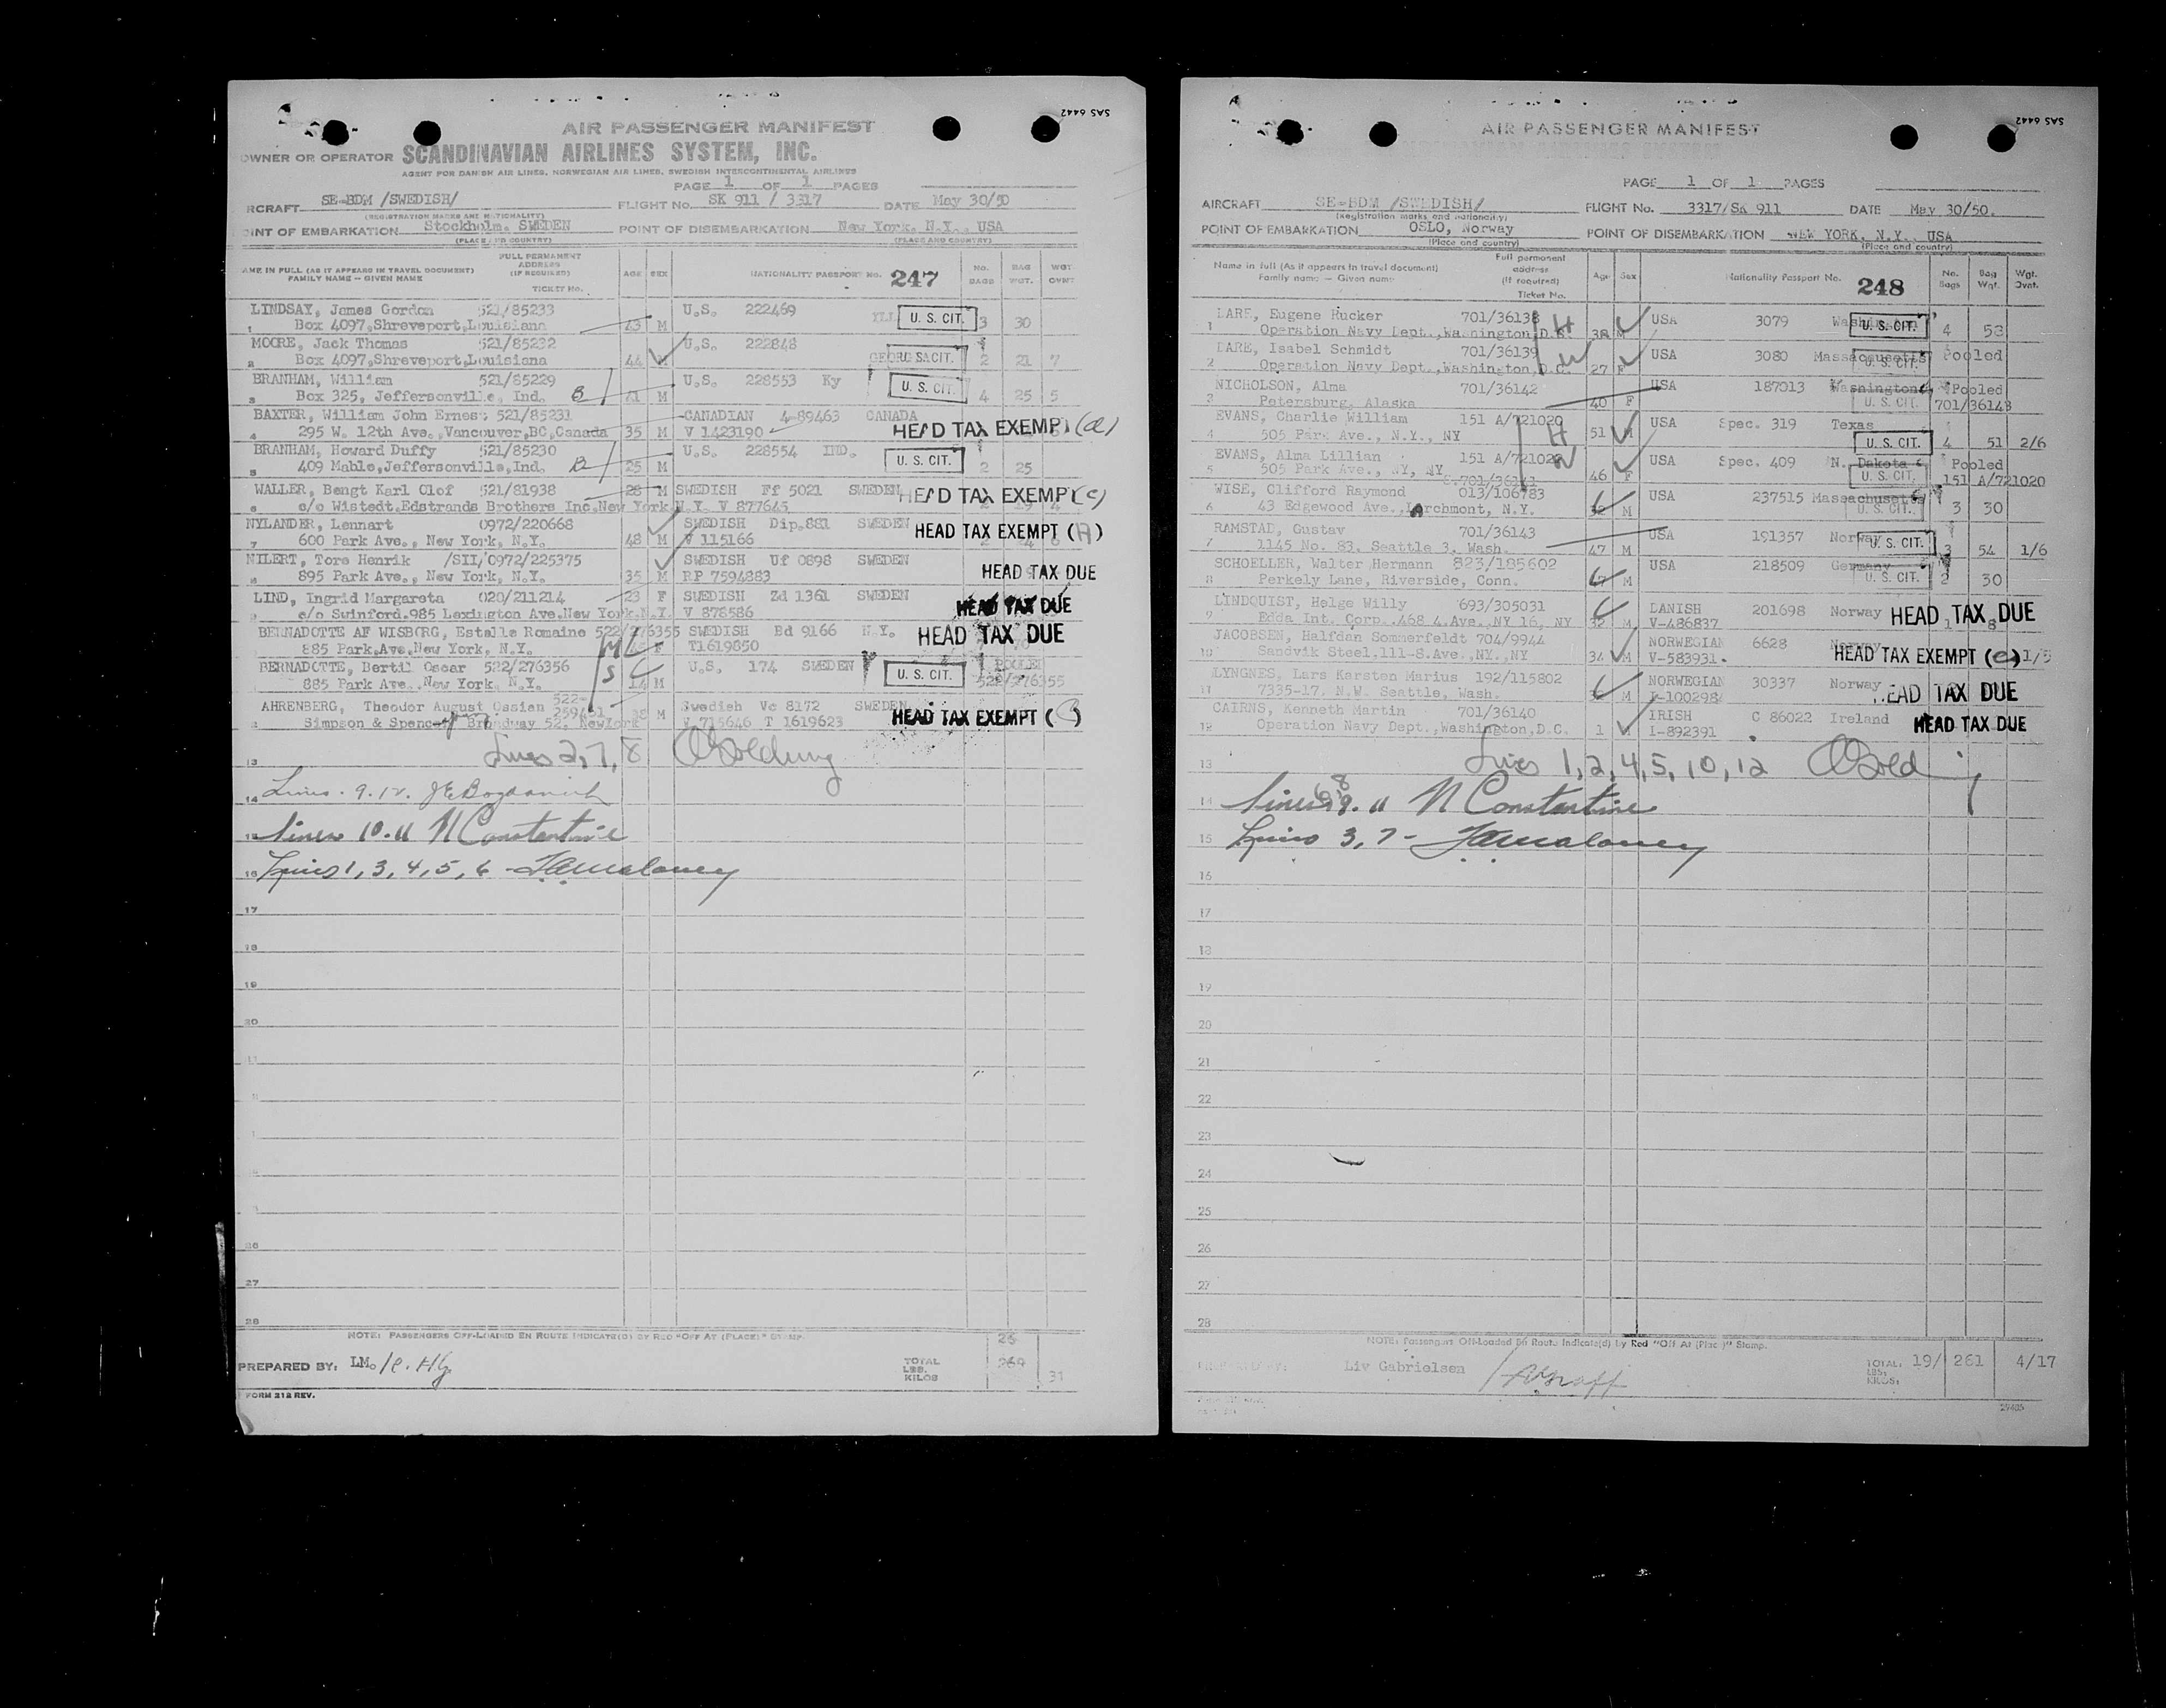 SAS 6442
AIR PASSENGER MANIFEST
OWNER OR OPERATOR SCANDINAVIAN AIRLINES SYSTEM, INC.
AGENT FOR DANISH AIR LINES, NORWEGIAN AIR LINES, SWEDISH INTERCONTINENTAL AIRLINES
PAGE 1 OF 1 PAGES
RCRAFT SE-BDM /SWEDISH/ FLIGHT No. SK 911 / 3317 DATE May 30/50
(REGISTRATION MARKS AND NATIONALITY)
INT OF EMBARKATION Stockholm. SWEDEN POINT OF DISEMBARKATION New York. N.Y. USA
(PLACE AND COUNTRY) (PLACE AND COUNTRY)
AME IN FULL (AS IT APPEARS IN TRAVEL DOCUMENT) FULL PERMANENT ADDRESS (IF REQUIRED) AGE SEX NATIONALITY PASSPORT No. 247 No. BAGS BAG WGT. WGT OVWT
FAMILY NAME – GIVEN NAME TICKET No.
LINDSAY, James Gordon 521/85233 U.S. 222469 ILL U. S. CIT. 3 30
1 Box 4097,Shreveport,Louisiana 43 M
MOORE, Jack Thomas 521/85232 U.S. 222848
2 Box 4097,Shreveport,Louisiana 44 CIT. 2 21 7
BRANHAM, William 521/85229 U.S. 228553 Ky U. S. CIT.
3 Box 325, Jeffersonville, Ind. B 71 M 4 25 5
BAXTER, William John Ernest 521/85231 CANADIAN 4-89463 CANADA
4 295 W. 12th Ave.,Vancouver,BC,Canada 35 M V 1423190 HEAD TAX EXEMPT (a)
BRANHAM, Howard Duffy 521/85230 U.S. 228554 IND. U. S. CIT.
5 409 Mable,Jeffersonville,Ind. B 25 M 2 25
WALLER, Bengt Karl Olof 521/81938 28 M SWEDISH Ff 5021 SWEDEN HEAD TAX EXEMPT (c)
6 c/o Wistedt.Edstrands Brothers Inc.New York N.Y. V 877645
NYLANDER, Lennart 0972/220668 SWEDISH Dip.881 SWEDEN HEAD TAX EXEMPT (A)
7 600 Park Ave., New York, N.Y. 48 M V 115166
NILERT, Tore Henrik /SII/0972/225375 SWEDISH Uf 0898 SWEDEN
8 895 Park Ave., New York, N.Y. 35 M RP 7594883 HEAD TAX DUE
LIND, Ingrid Margareta 020/211214 23 F SWEDISH Zd 1361 SWEDEN
c/o Swinford.985 Lexington Ave.New York.N.Y. V 878586 HEAD TAX DUE
BERNADOTTE AF WISBORG, Estelle Romaine 522/276355 SWEDISH Bd 9166 N.Y. HEAD TAX DUE
885 Park.Ave.New York, N.Y. M F T1619850
BERNADOTTE, Bertil Oscar 522/276356 U.S. 174 SWEDEN U. S. CIT. POOLED
885 Park Ave. New York, N.Y. S 14 M 522/276355
AHRENBERG, Theodor August Ossian 522-259451 38 M Swedish Vc 8172 SWEDEN
Simpson & Spence Broadway 52, NewYork V 715646 T 1619623 HEAD TAX EXEMPT (
13 Lines 2,7,8
14 Lines 9.12.
15 Lines 10.11 N Constantine
16 Lines 1, 3, 4, 5, 6
17
18
19
20
26
27
28
NOTE: PASSENGERS OFF-LOADED EN ROUTE INDICATE(D) BY RED "OFF AT (PLACE)" STAMP. 25
PREPARED BY: LM. TOTAL LBS. KILOS 269 31
FORM 212 REV.
SAS 6442
AIR PASSENGER MANIFEST
PAGE 1 OF 1 PAGES
AIRCRAFT SE-BDM /SWEDISH/ FLIGHT No. 3317/SK 911 DATE May 30/50.
(Registration marks and nationality)
POINT OF EMBARKATION OSLO, Norway POINT OF DISEMBARKATION NEW YORK. N.Y. USA
(Place and country) (Place and country)
Name in full (As it appears in travel document) Full permanent address (if required) Age Sex Nationality Passport No. 248 No. Bags Bag Wgt. Wgt. Ovwt.
Family name – Given name Ticket No.
LARE, Eugene Rucker 701/36138 H USA 3079 Washington U. S. CIT. 4 53
1 Operation Navy Dept.,Washington,D.C. 38 M
LARE, Isabel Schmidt 701/36139 W USA 3080 Massachusetts Pooled
2 Operation Navy Dept.,Washington,D.C. 27 F U. S. CIT.
NICHOLSON, Alma 701/36142 USA 187013 Washington Pooled
3 Petersburg, Alaska 40 F U. S. CIT. 701/36143
EVANS, Charlie William 151 A/721020 H USA Spec. 319 Texas
4 505 Park Ave., N.Y., NY 51 M U. S. CIT. 4 51 2/6
EVANS, Alma Lillian 151 A/721022 W USA Spec. 409 N. Dakota Pooled
5 505 Park Ave., NY, NY 46 F U. S. CIT. 151 A/721020
WISE, Clifford Raymond 013/106783 USA 237515 Massachusetts
6 43 Edgewood Ave.,Larchmont, N.Y. 32 M U. S. CIT. 3 30
RAMSTAD, Gustav 701/36143 USA 191357 Norway U. S. CIT.
7 1145 No. 83. Seattle 3. Wash. 47 M 3 54 1/6
SCHOELLER, Walter Hermann 823/185602 USA 218509 Germany
8 Perkely Lane, Riverside, Conn. M U. S. CIT. 2 30
LINDQUIST, Helge Willy 693/305031 DANISH 201698 Norway HEAD TAX DUE
9 Edda Int. Corp. 468 4.Ave. NY 16, NY 32 M V-486837
JACOBSEN, Halfdan Sommerfeldt 704/9944 NORWEGIAN 6628 Norway
10 Sandvik Steel,111-8.Ave.,NY.,NY 34 M V-583931. HEAD TAX EXEMPT (e) 1/5
LYNGNES, Lars Karsten Marius 192/115802 NORWEGIAN 30337 Norway HEAD TAX DUE
11 7335-17. N.W. Seattle, Wash. M I-100298
CAIRNS, Kenneth Martin 701/36140 IRISH C 86022 Ireland HEAD TAX DUE
12 Operation Navy Dept.,Washington,D.C. 1 I-892391
13 Lines 1,2,4,5,10,12
14 Lines N Constantine
15 Lines 3, 7 -
16
17
18
19
20
21
22
23
24
25
26
27
28
NOTE: Passengers Off-Loaded En Route Indicate(d) by Red "Off At (Place)" Stamp.
PREPARED BY: Liv Gabrielsen TOTAL: LBS: KILOS: 19/ 261 4/17